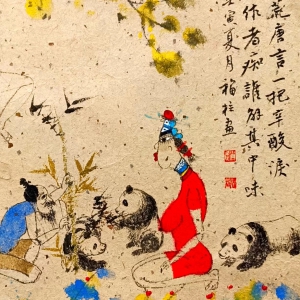 荒唐言一把辛酸淚
作者痴誰解其中味
壬寅夏月 福柱画